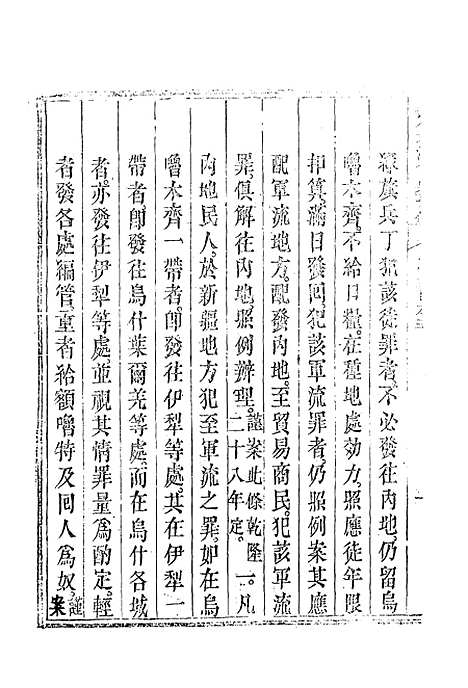 綠旗兵丁犯該徒罪者不必發往內地仍留烏
嚕木齊不給口糧在種地處効力照應徒年限
扣算滿日發回犯該軍流罪者仍照例案其應
配軍流地方配發內地至貿易商民犯該軍流
罪俱解往內地照例辦理謹案此條乾隆二十八年定一凡
內地民人於新疆地方犯至軍流之罪如在烏
嚕木齊一帶者卽發往伊犁等處其在伊犁一
帶者卽發往烏什葉爾羌等處而在烏什各城
者亦發往伊犁等處並視其情罪量為酌定輕
者發各處編管重者給額嚕特及回人為奴謹案